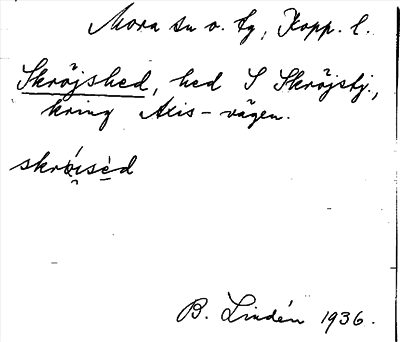 Mora sn o. tg, Kopp. l.
Skröjshed, hed S Skröjstj.,
kring Axis-vägen.
B. Lindén 1936.